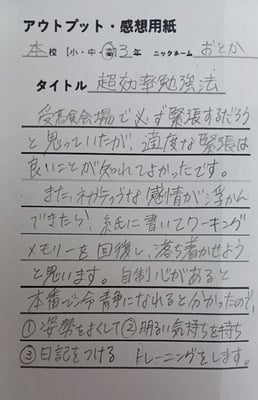 アウトプット・感想用紙
本校 [小・中・高]3年 ニックネーム おとか
タイトル 超効率勉強法
受験会場で必ず緊張するだろう
と思っていたが、適度な緊張は
良いことが知れてよかったです。
また、ネガティブな感情が浮かん
できたら、紙に書いてワーキング
メモリーを回復し、落ち着かせよう
と思います。自制心があると
本番で冷静になれると分かったので、
①姿勢をよくして②明るい気持ちを持ち
③日記をつける トレーニングをします。